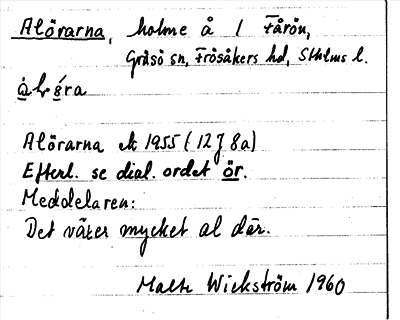 Alörarna, holme å l Fårön,
Gräsö sn, Frösåkers hd, Sthlms l.
Alörarna ek 1955 (12J 8a)
Efterl. se dial. ordet ör.
Meddelaren:
Det växer mycket al där.
Malte Wickström 1960